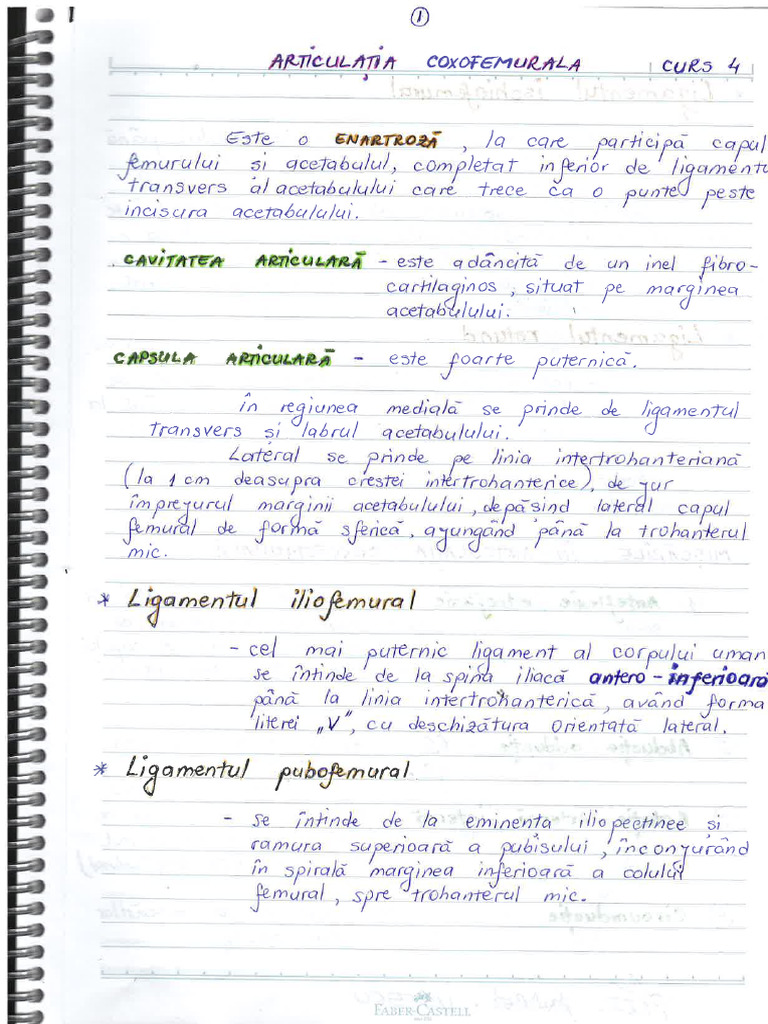 1
ARTICULAȚIA COXOFEMURALA CURS 4
Este o ENARTROZĂ, la care participă capul
femurului și acetabulul, completat inferior de ligamentu
transvers al acetabulului care trece ca o punte peste
incisura acetabulului.
CAVITATEA ARTICULARĂ - este adâncită de un inel fibro-
cartilaginos, situat pe marginea
acetabulului.
CAPSULA ARTICULARĂ - este foarte puternică.
În regiunea medială se prinde de ligamentul
transvers și labrul acetabulului.
Lateral se prinde pe linia intertrohanteriană
(la 1 cm deasupra crestei intertrohanterice), de jur
împrejurul marginii acetabulului, depășind lateral capul
femural de formă sferică, ajungând până la trohanterul
mic.
* Ligamentul iliofemural
- cel mai puternic ligament al corpului uman
se întinde de la spina iliacă antero-inferioară
până la linia intertrohanterică, având forma
literei „V”, cu deschizătura orientată lateral.
* Ligamentul pubofemural
- se întinde de la eminenta iliopectinee și
ramura superioară a pubisului, înconjurând
în spirală marginea inferioară a colului
femural, spre trohanterul mic.
FABER-CASTELL